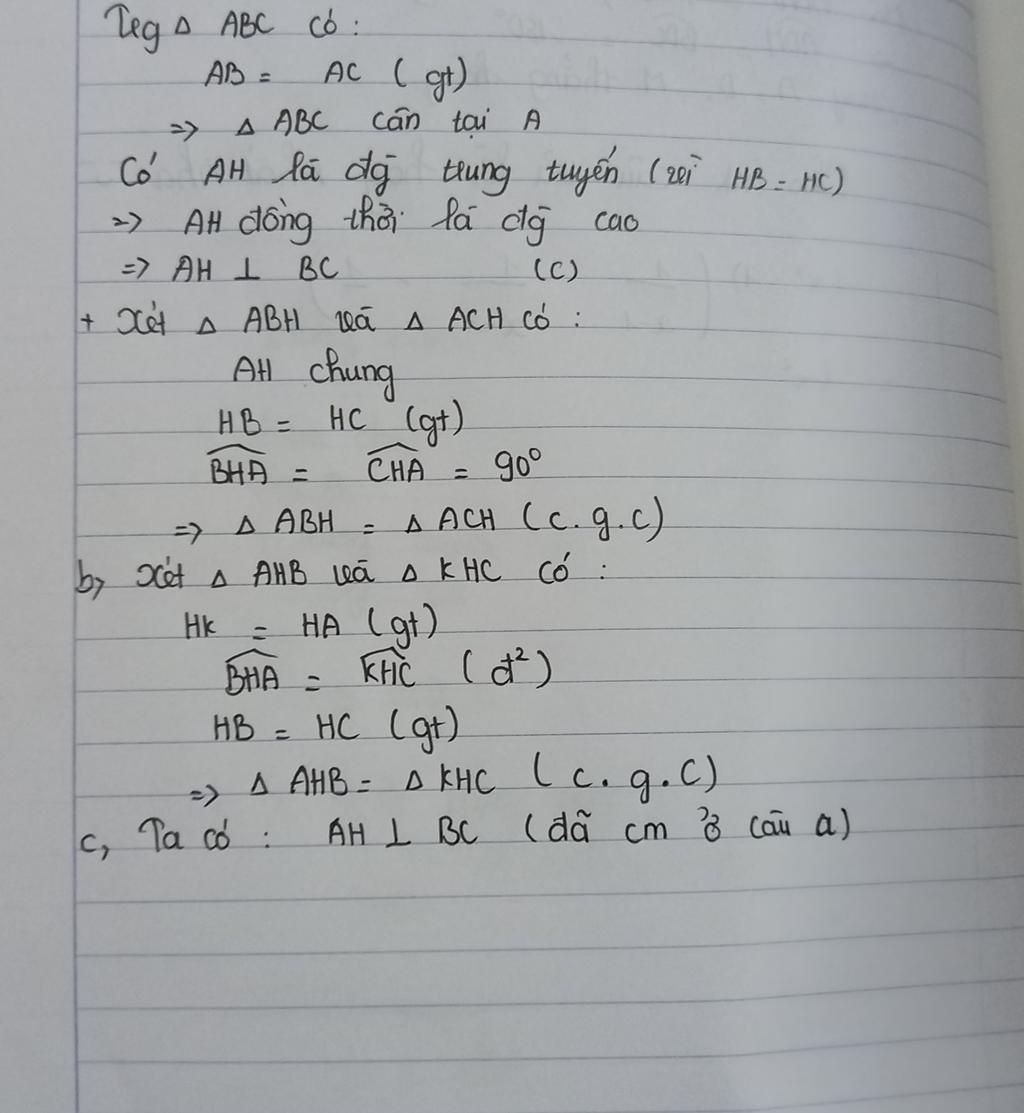 Trg Δ ABC có :
AB = AC ( gt)
=> Δ ABC cân tại A
Có AH là đg trung tuyến (vì HB = HC)
=> AH đồng thời là đg cao
=> AH ⊥ BC (C)
+ Xét Δ ABH và Δ ACH có :
AH chung
HB = HC (gt)
\widehat{BHA} = \widehat{CHA} = 90°
=> Δ ABH = Δ ACH ( c.g.c)
b, Xét Δ AHB và Δ KHC có :
HK = HA (gt)
\widehat{BHA} = \widehat{KHC} (đ²)
HB = HC (gt)
=> Δ AHB = Δ KHC ( c.g.c)
c, Ta có : AH ⊥ BC (đã cm ở câu a)